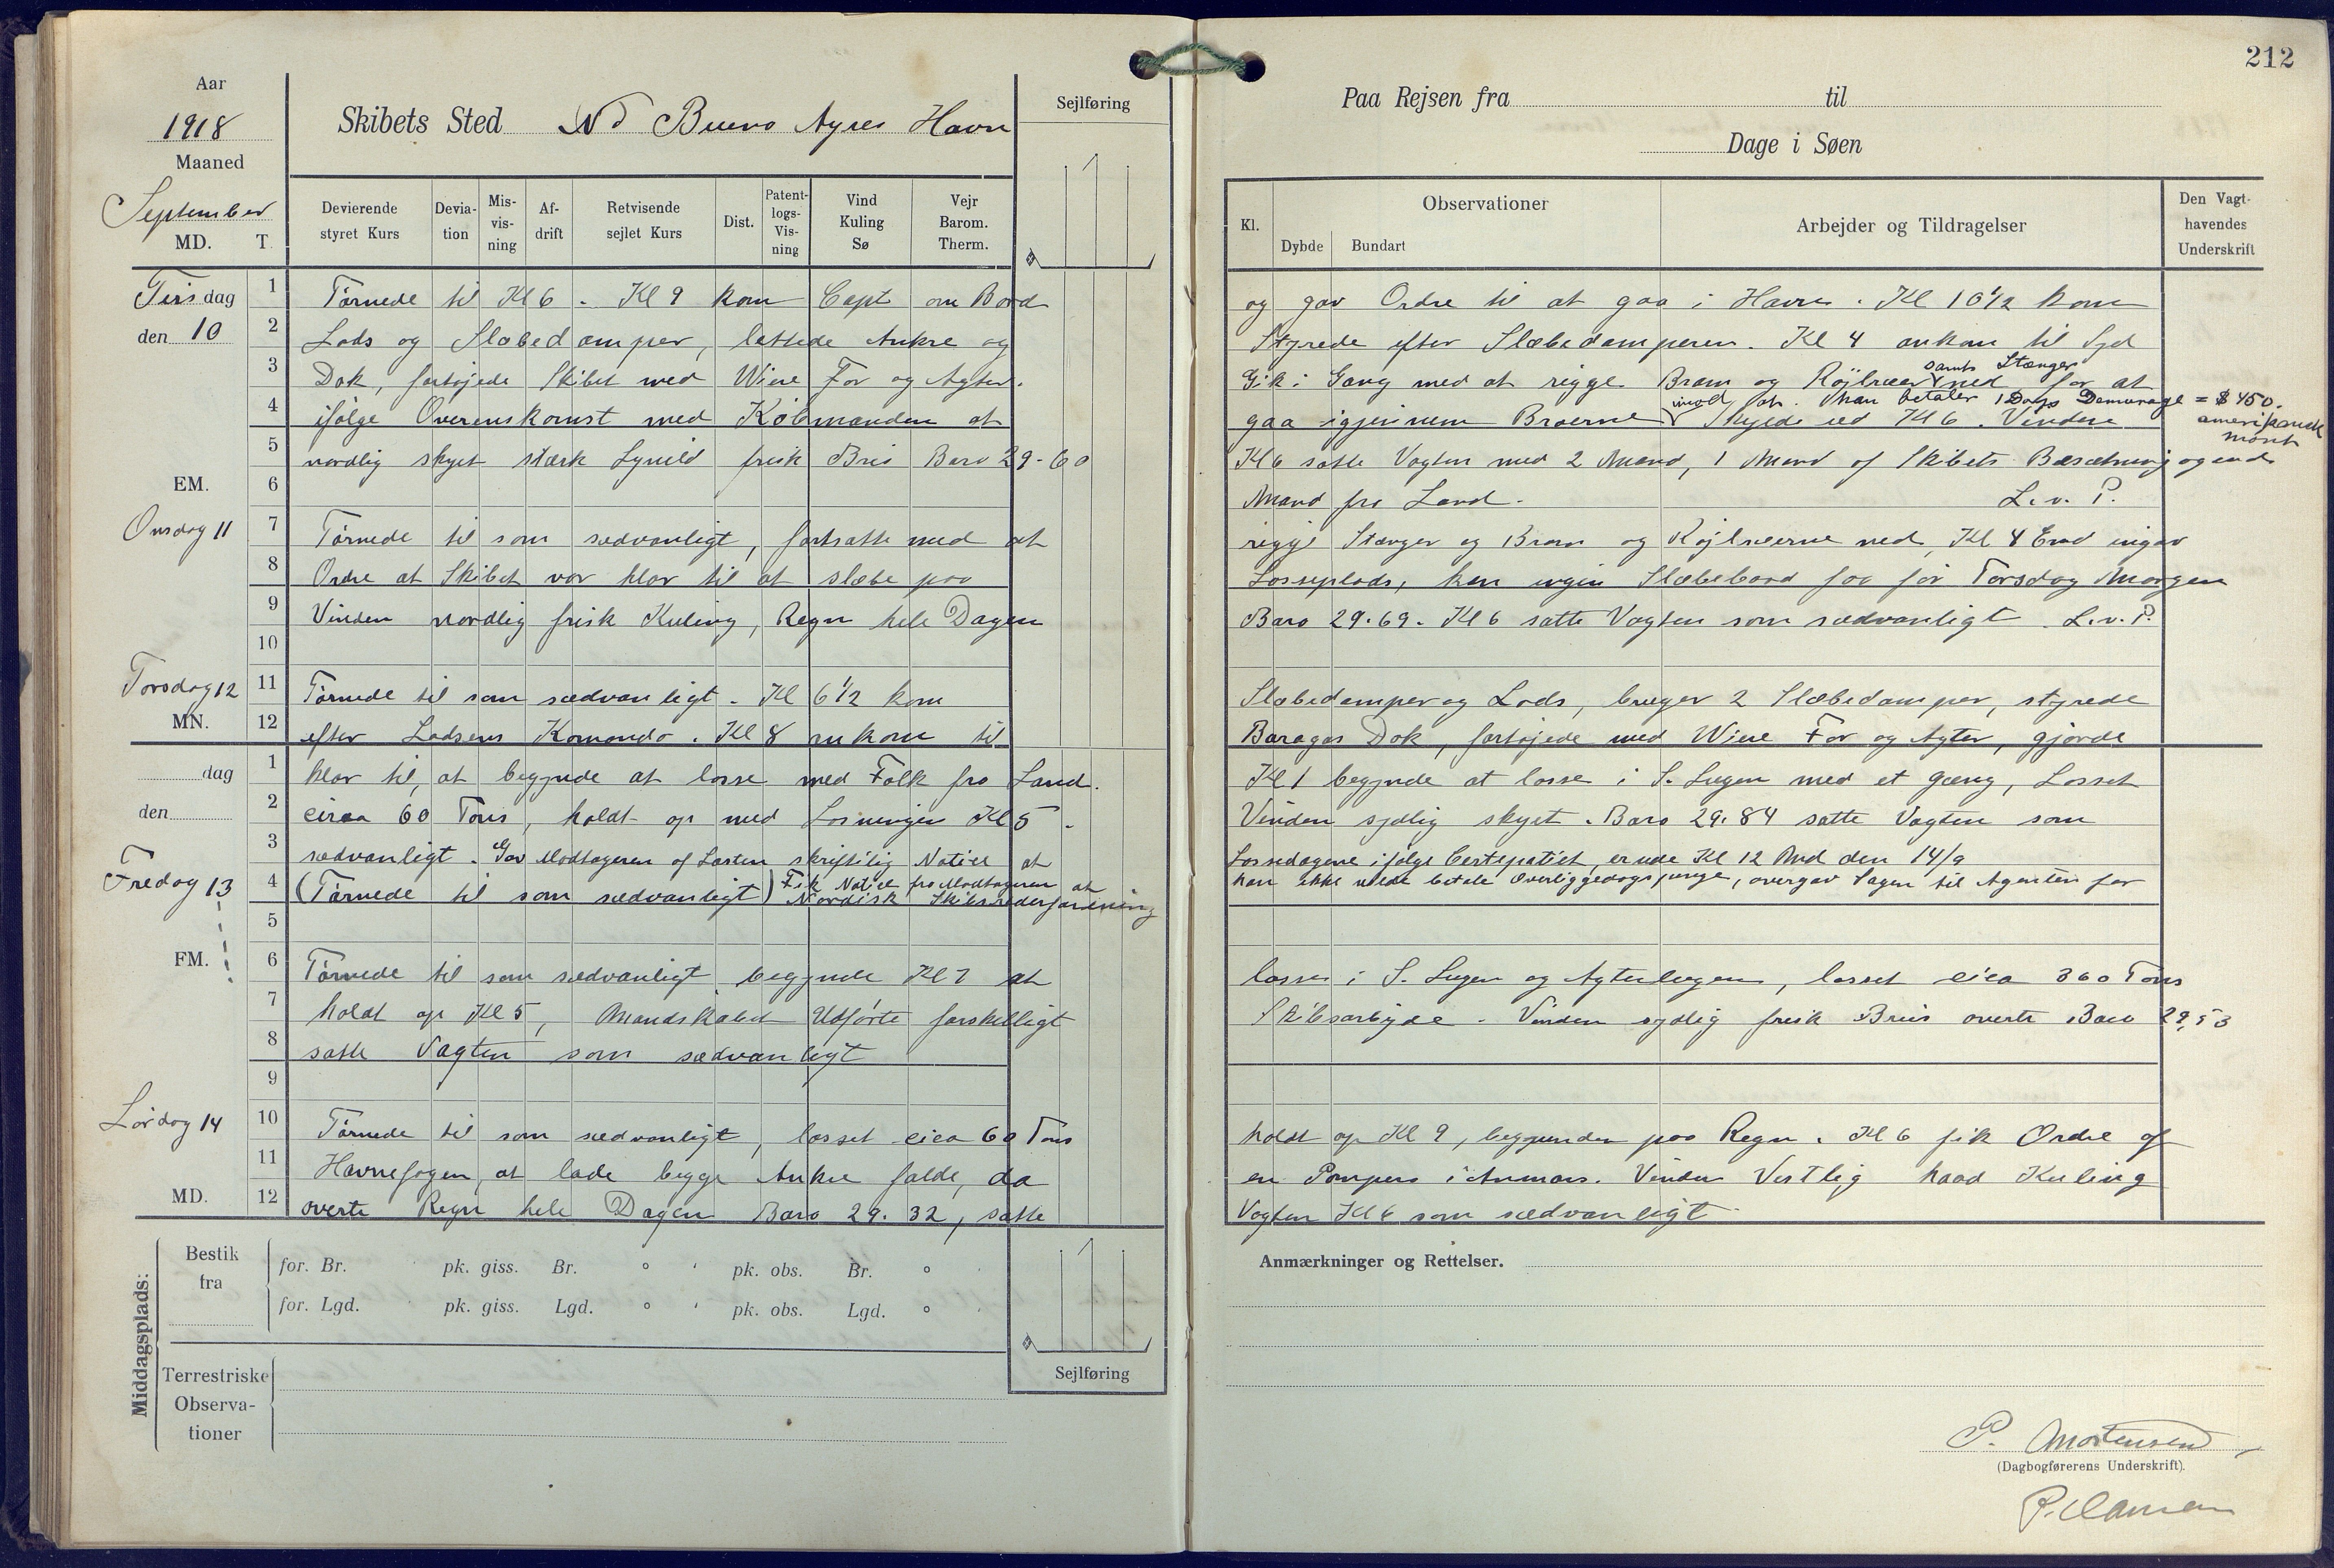 212
Aar
1918
Maaned
September
MD. T.
Skibets Sted Buenos Ayres Havn
Sejlføring
Paa Rejsen fra til
Dage i Søen
Devierende styret Kurs
Devia-tion
Mis-vis-ning
Af-drift
Retvisende sejlet Kurs
Dist.
Patent-logs-Vis-ning
Vind Kuling Sø
Vejr Barom. Therm.
Kl.
Observationer
Dybde Bundart
Arbejder og Tildragelser
Den Vagt-havendes Underskrift
Tirsdag
den 10
1 Tørnede til Kl 6 . Kl 9 kom Capt om Bord og gav Ordre til at gaa i Havn . Kl 10 1/2 kom
2 Lods og Slæbedamper, lettede Ankre og Styrede efter Slæbedamperen. Kl 4 ankom til Syd
3 Dok, fortøjede Skibet med Wire For og Agter. Gik i Gang med at rigge Bram og Røjlræer ned for at
samt Stænger
4 ifølge Overenskomst med Købmanden at gaa igjennem Broerne Skylde ved Kl 6 . Vinden
imod at han betaler 1 Dags Demurage = $ 450.
amerikansk
mønt
5 nordlig skyet stærk Lynild frisk Bris Baro 29-60 Kl 6 satte Vagten med 2 Mand, 1 Mand af Skibets Besætning og end
EM. 6 Mand fra Land. L.v. P.
Onsdag 11
7 Tørnede til som sædvanligt, fortsatte med at rigge Stænger og Bram og Røjlræerne ned, Kl 4 Emd
8 Ordre at Skibet var klar til at slæbe paa Losseplads, kan ingen Slæbebaad faa før Torsdag Morgen
9 Vinden nordlig frisk Kuling, Regn hele Dagen Baro 29.69. Kl 6 satte Vagten som sædvanligt . L.v.P.
10
Torsdag 12
MN.
11 Tørnede til som sædvanligt . Kl 6 1/2 kom Slæbedamper og Lods, bruger 2 Slæbedamper, styrede
12 efter Lodsens Komando . Kl 8 ankom til Dok, fortøjede med Wire For og Agter, gjorde
dag
den
1 klar til, at begynde at losse med Folk fra Land. Kl 1 begynde at losse i S. Lugen med et gang, Losset
2 circa 60 Tons, holdt op med Losningen Kl 5 . Vinden sydlig skyet . Baro 29.84 satte Vagten som
3 sædvanligt . Gav Modtageren af Lasten skriftilig Notice at Lossedagene ifølge Certepartiet, er ude Kl 12 Md den 14/9
Fredag 13
4 (Tørnede til som sædvanligt) Fik Notice fra Modtageren at han ikke vilde betale Overliggedagspenge, overgav Sagen til Agenten for
Nordisk Skibsrederforening
5
FM.
6 Tørnede til som sædvanligt begynde Kl 7 at losse i S. Lugen og Agterlugen, losset cica 360 Tons
7 holdt op Kl 5, Mandskabet Udførte forskelligt Skibsarbejde - Vinden sydlig frisk Bris overts Baro 29,53
8 satte Vagten som sædvanligt
9
Lørdag 14
10 Tørnede til som sædvanligt, losset cica 60 Tons holdt op Kl 9, paa Regn . Kl 6 fik Ordre af
11 Havnefogen, at lade begge Ankre falde, da en Pampero i Anmars. Vinden Vestlig haad Kuling
MD.
12 overts Regn hele Dagen Baro 29.32, satte Vagten Kl 6 som sædvanligt
Middagsplads:
Bestik fra
for. Br. pk. giss. Br. ° ' pk. obs. Br. ° '
for. Lgd. pk. giss. Lgd. ° ' pk. obs. Lgd. ° '
Terrestriske Observa-tioner
Sejlføring
Anmærkninger og Rettelser.
P. Mortensen
(Dagbogførerens Underskrift).